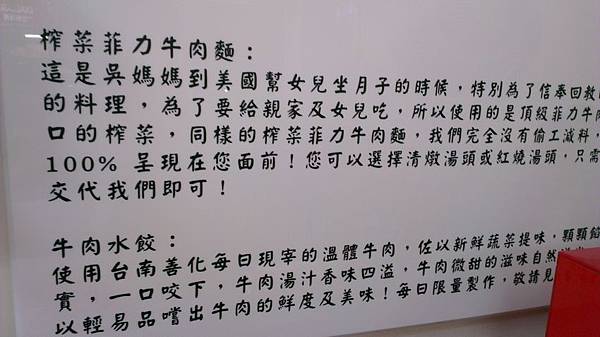 榨菜菲力牛肉麵：
這是吳媽媽到美國幫女兒坐月子的時候，特別為了信奉回教
的料理，為了要給親家及女兒吃，所以使用的是頂級菲力牛
口的榨菜，同樣的榨菜菲力牛肉麵，我們完全沒有偷工減料，
100% 呈現在您面前！您可以選擇清燉湯頭或紅燒湯頭，只需
交代我們即可！
牛肉水餃：
使用台南善化每日現宰的溫體牛肉，佐以新鮮蔬菜提味，顆顆餡
實，一口咬下，牛肉湯汁香味四溢，牛肉微甜的滋味自然
以輕易品嚐出牛肉的鮮度及美味！每日限量製作，敬請見